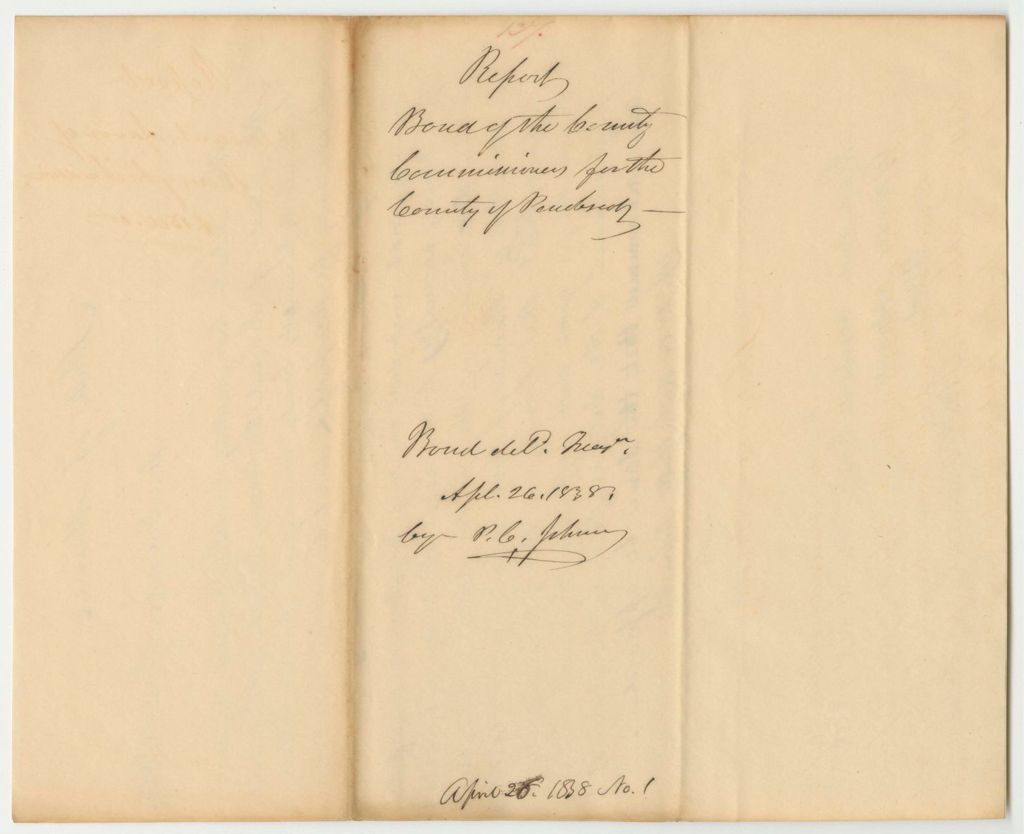 137.
Report
Bond of the County
Commissioners for the
County of Penobscot —
Bond del'd. Treasr.
Apl. 26. 1838.
by P. C. Johnson
April 26. 1838 No. 1